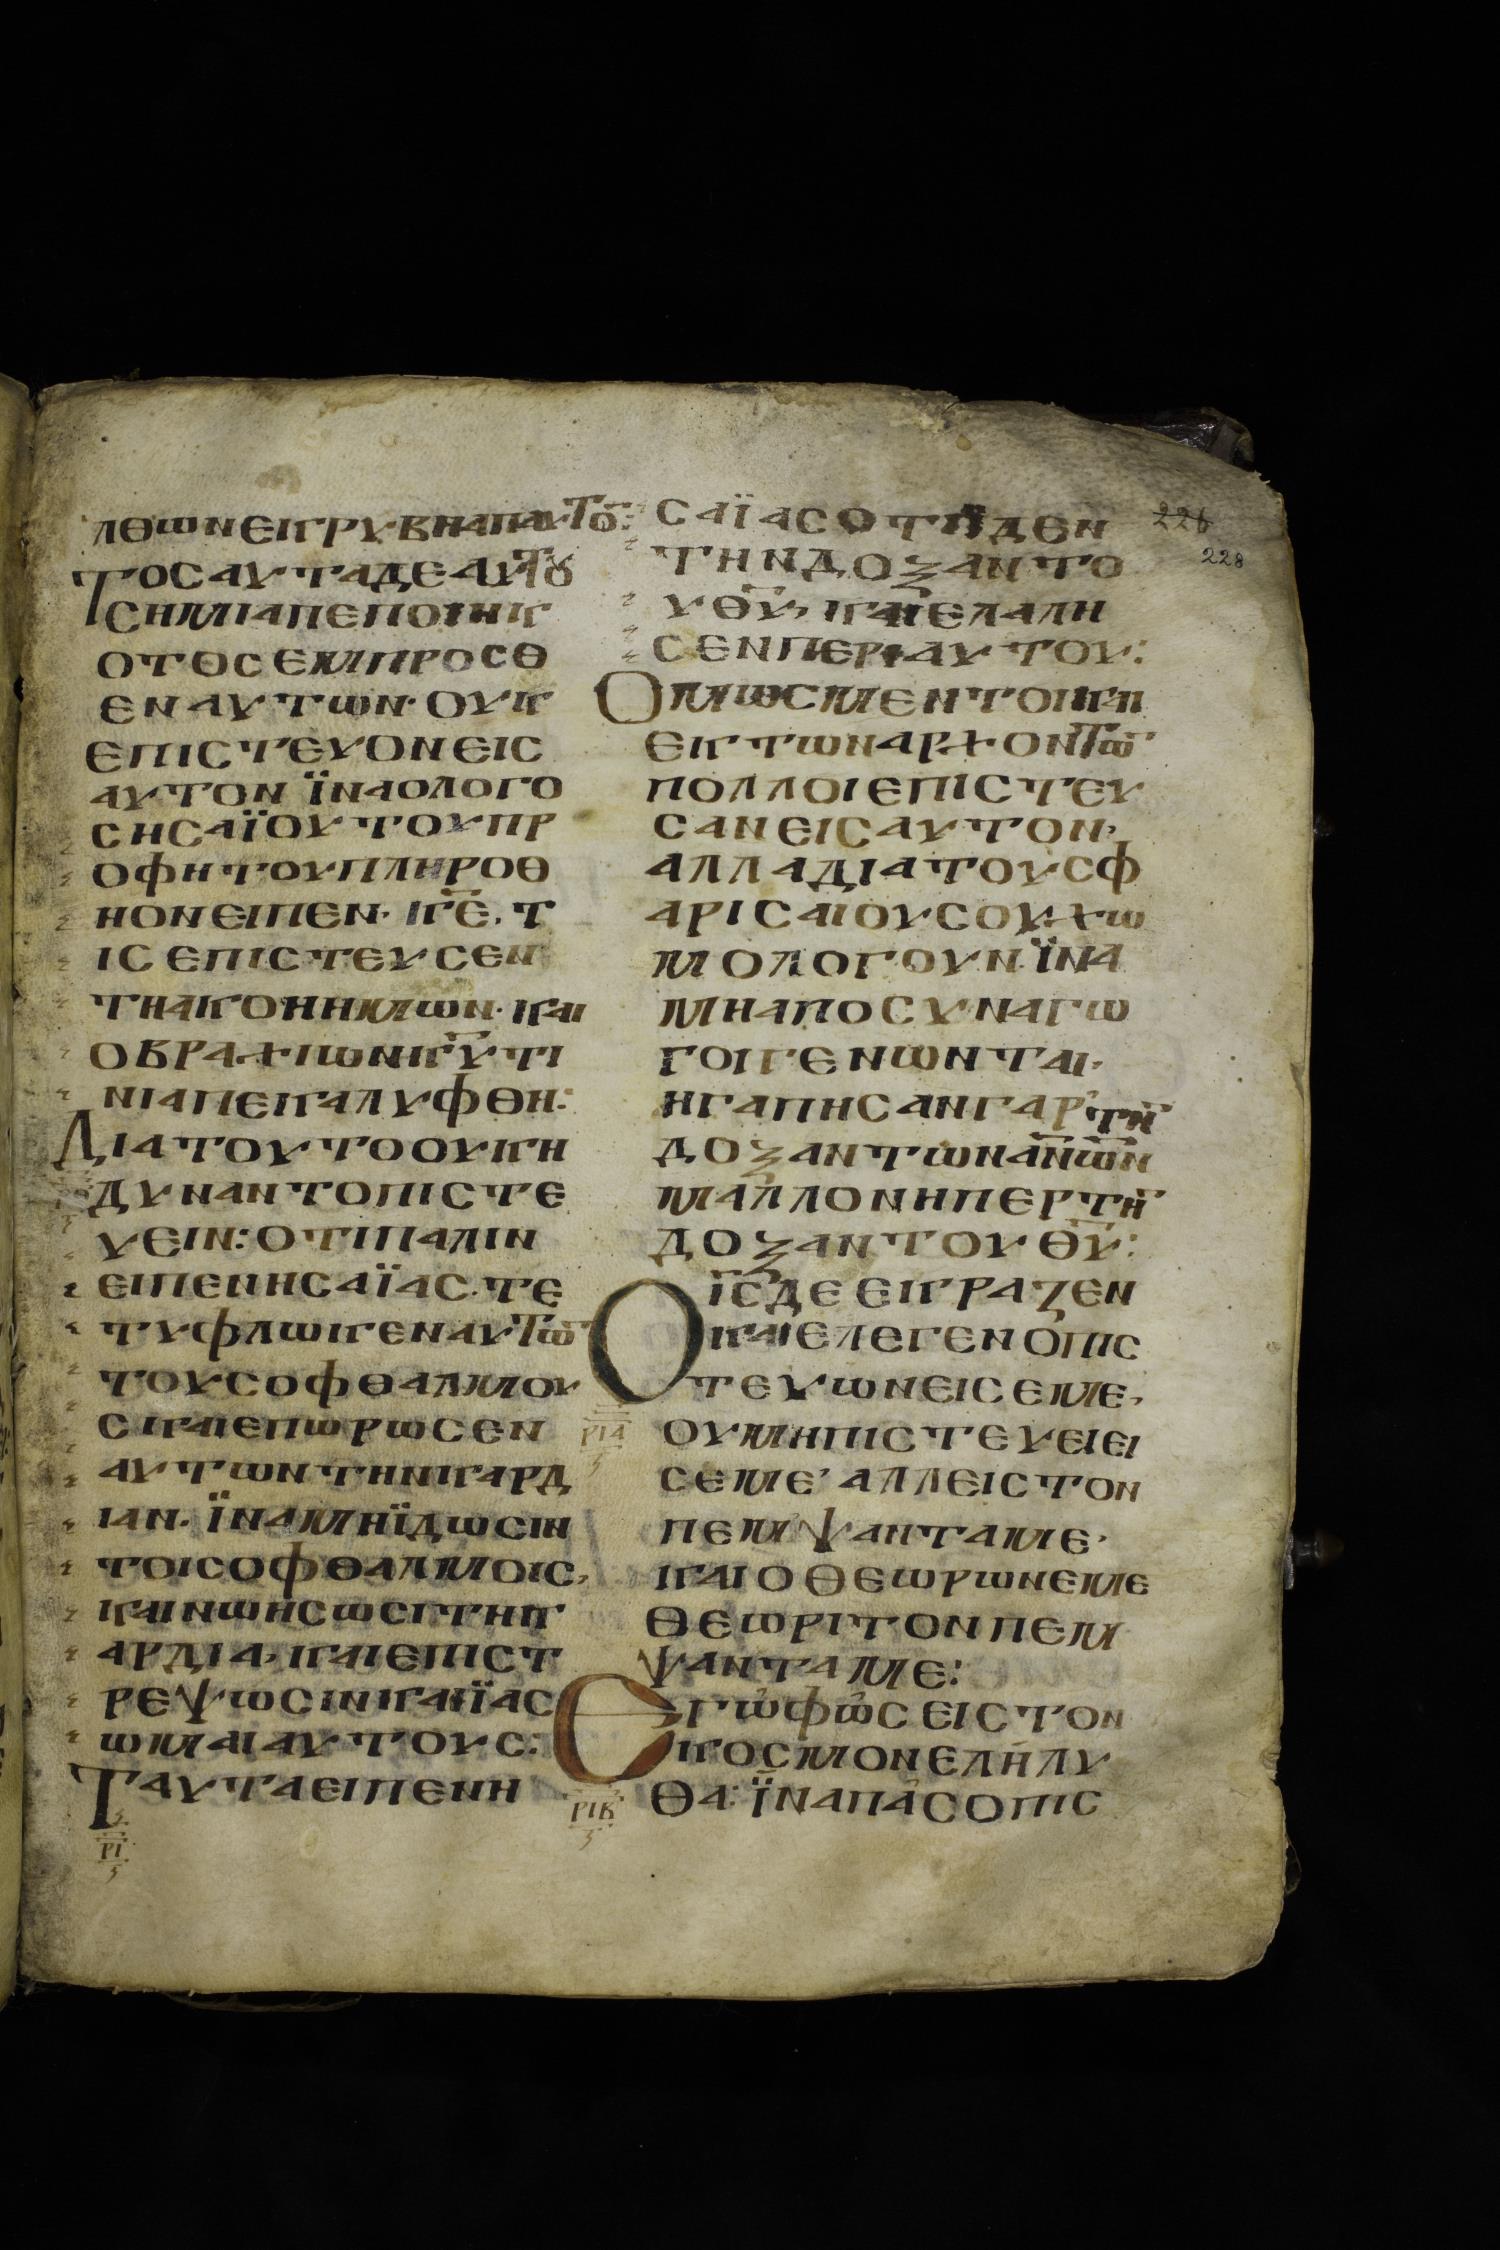 ΛΘΩΝΕΚΡΥΒΗΑΠΑΥΤΟ̅:
ΤΟCΑΥΤΑΔΕΑΥΤȣ
CΗΜΙΑΠΕΠΟΙΗΚ
ΟΤΟCΕΜΠΡΟCΘ
ΕΝΑΥΤΩΝ· ΟΥΚ
ΕΠΙCΤΕΥΟΝΕΙC
ΑΥΤΟΝ ΪΝΑΟΛΟΓΟ
CΗCΑΪΟΥΤΟΥΠΡ
ΟΦΗΤΟΥΠΛΗΡΟΘ
ΗΟΝΕΙΠΕΝ· Κ̅Ε̅, Τ
ΙCΕΠΙCΤΕΥCΕΝ
ΤΗΑΚΟΗΗΜΩΝ· ΚΑΙ
ΟΒΡΑΧΙΩΝΚ̅Υ̅ΤΙ
ΝΙΑΠΕΚΑΛΥΦΘΗ:
ΔΙΑΤΟΥΤΟΟΥΚΗ
ΔΥΝΑΝΤΟΠΙCΤΕ
ΥΕΙΝ: ΟΤΙΠΑΛΙΝ
ΕΙΠΕΝΗCΑΪΑC· ΤΕ
ΤΥΦΛΩΚΕΝΑΥΤΩ̅
ΤΟΥCΟΦΘΑΛΜΟΥ
CΚΑΙΕΠΩΡΩCΕΝ
ΑΥΤΩΝΤΗΝΚΑΡΔ
ΙΑΝ· ΪΝΑΜΗΪΔΩCΙΝ
ΤΟΙCΟΦΘΑΛΜΟΙC,
ΚΑΙΝΩΗCΩCΙΤΗΚ
ΑΡΔΙΑ, ΚΑΙΕΠΙCΤ
ΡΕΨΩCΙΝΚΑΙΪΑC
ΩΜΑΙΑΥΤΟΥC:
ΤΑΥΤΑΕΙΠΕΝΗ
ΡΙ
CΑΪΑCΟΤΗΪΔΕΝ
ΤΗΝΔΟΞΑΝΤΟ
ΥΘ̅Υ̅, ΚΑΙΕΛΑΛΗ
CΕΝΠΕΡΙΑΥΤΟΥ:
ΟΜΩCΜΕΝΤΟΙΚΑΙ
ΕΚΤΩΝΑΡΧΟΝΤΩ̅
ΠΟΛΛΟΙΕΠΙCΤΕΥ
CΑΝΕΙCΑΥΤΟΝ,
ΑΛΛΑΔΙΑΤΟΥCΦ
ΑΡΙCΑΙΟΥCΟΥΧΩ
ΜΟΛΟΓΟΥΝ· ΪΝΑ
ΜΗΑΠΟCΥΝΑΓΩ
ΓΟΙΓΕΝΩΝΤΑΙ·
ΗΓΑΠΗCΑΝΓΑΡΤΗ̅
ΔΟΞΑΝΤΩΝΑ̅Ν̅Ω̅Ν̅
ΜΑΛΛΟΝΗΠΕΡΤΗ̅
ΔΟΞΑΝΤΟΥΘ̅Υ̅:
ΟΙ̅C̅ΔΕΕΚΡΑΖΕΝ
ΚΑΙΕΛΕΓΕΝΟΠΙC
ΤΕΥΩΝΕΙCΕΜΕ,
ΡΙΑ
ΟΥΜΗΠΙCΤΕΥΕΙΕΙ
CΕΜΕ' ΑΛΛΕΙCΤΟΝ
ΠΕΜΨΑΝΤΑΜΕ·
ΚΑΙΟΘΕΩΡΩΝΕΜΕ
ΘΕΩΡΙΤΟΝΠΕΜ
ΨΑΝΤΑΜΕ:
ΕΓΩΦΩCΕΙCΤΟΝ
ΚΟCΜΟΝΕΛΗΛΥ
ΘΑ: ΪΝΑΠΑCΟΠΙC
ΡΙΒ
226
228